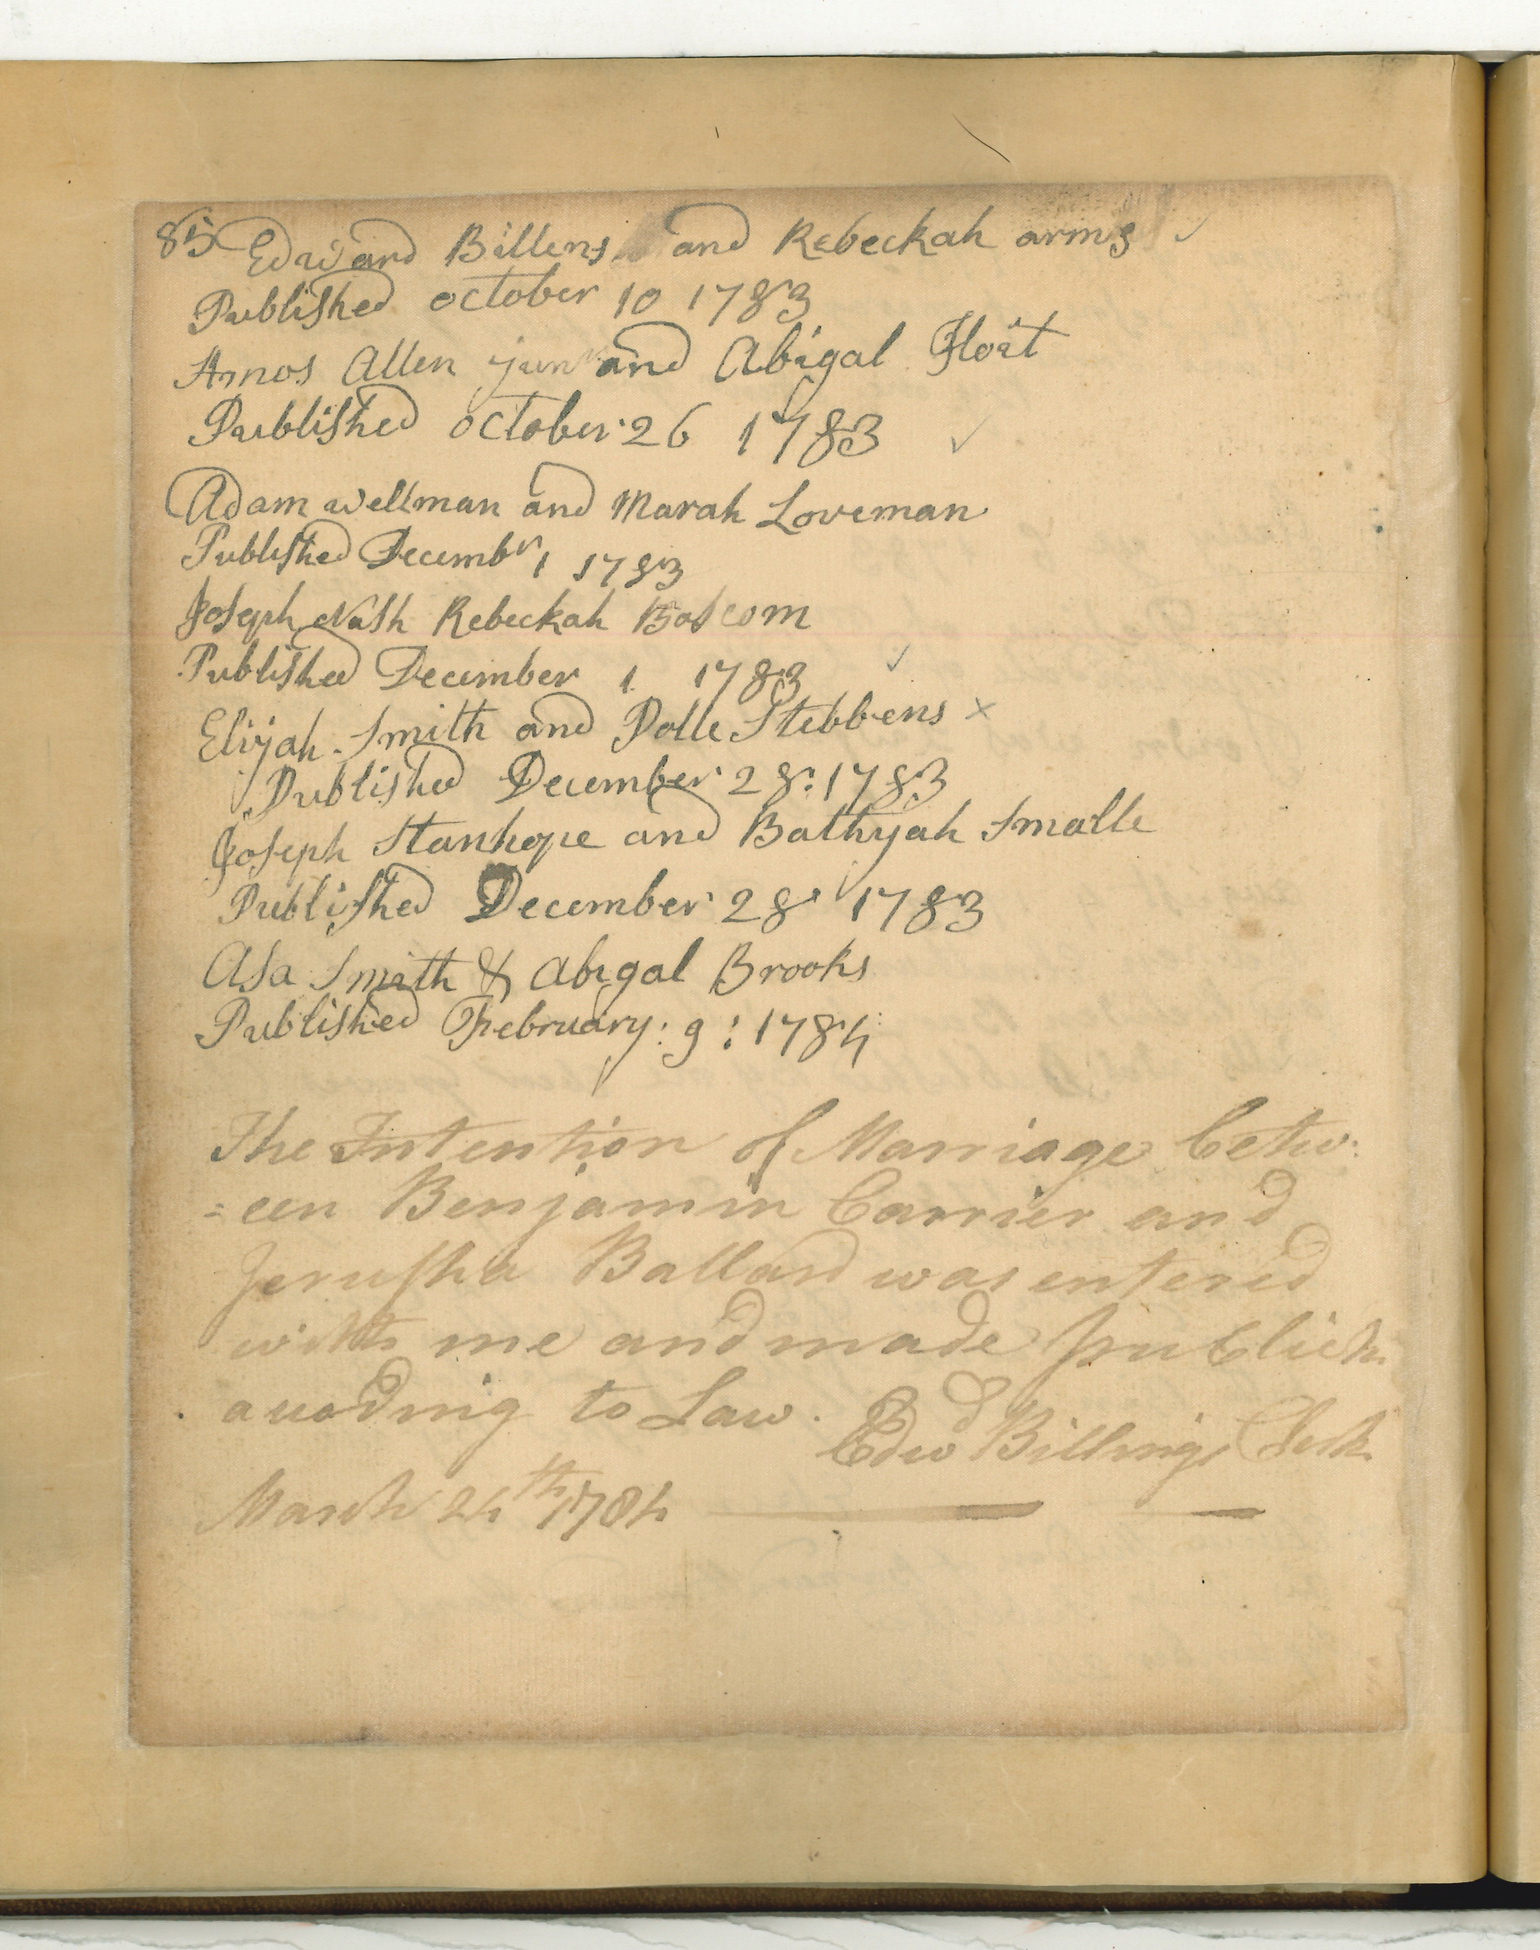 85 Edward Billens and Rebeckah arms
Published october 10 1783
Amos Allen junr and Abigal Hoit
Published october 26 1783
Adam wellman and Marah Loveman
Published Decembr 1 1783
Joseph Nash Rebeckah Boscom
Published December 1 1783
Elijah Smith and Dolle Stebbens x
Published December 28: 1783
Joseph Stanhope and Bathyah Smalle
Published December 28 1783
Asa Smith & Abigal Brooks
Published February: 9: 1784
The Intention of Marriage betw:
=een Benjamin Carrier and
Jerusha Ballard was entered
with me and made publick
according to Law.
Edwd Billings Clerk
March 24th 1784